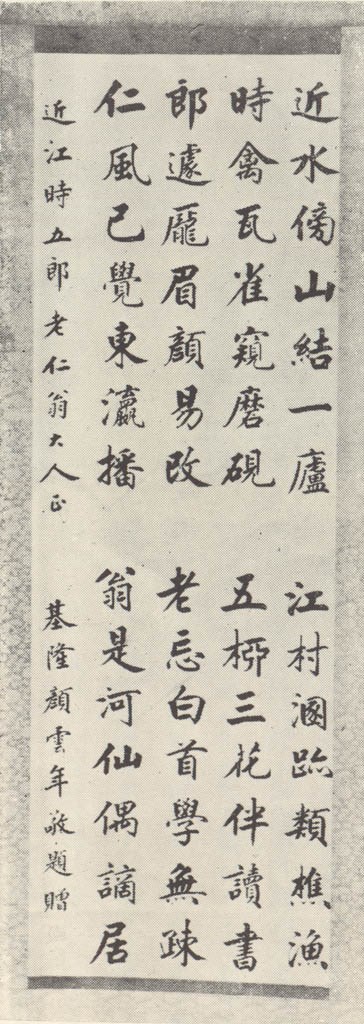 近水傍山結一廬 江村溷跡類樵漁
時禽瓦雀窺磨硯 五桺三花伴讀書
郎遽龐眉顏易改 老忘白首學無疎
仁風已覺東瀛播 翁是河仙偶謫居
近江時五郎老仁翁大人正 基隆顏雲年敬題贈